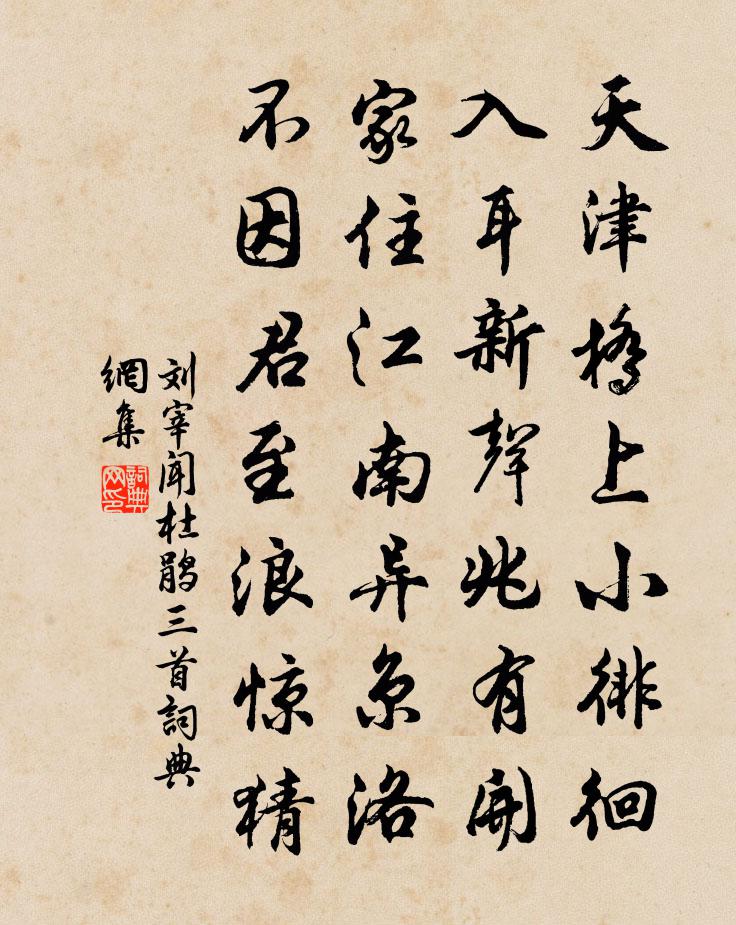 天津橋上小徘徊
入耳新聲兆有開
家住江南异京洛
不因君至浪惊猜
刘宰闻杜鹃三首詞典
網集
詞典
网印